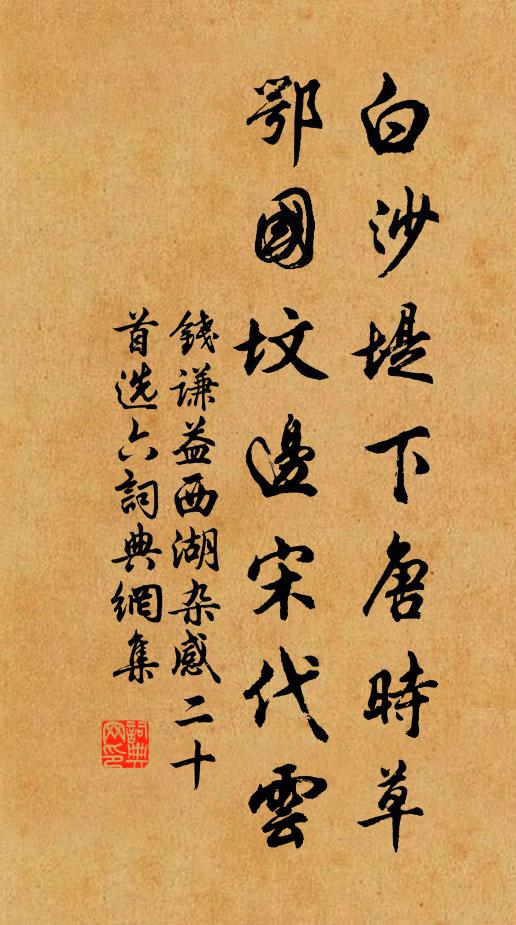 白沙堤下唐時草
鄂國坟邊宋代雲
錢谦益西湖杂感二十
首选六詞典網集
詞典
网印